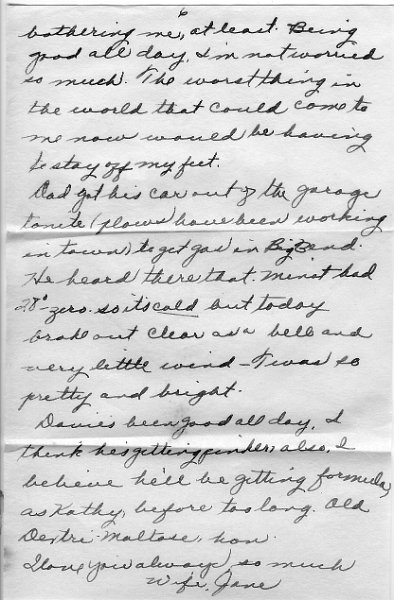 6
bothering me, at least. Being
good all day, I'm not worried
so much. The worst thing in
the world that could come to
me now would be having
to stay off my feet.
Dad got his car out of the garage
tonite (plows have been working
in town) to get gas in Big Bend.
He heard there that Minot had
28° zero. so its cold but today
broke out clear as a bell and
very little wind - Twas so
pretty and bright.
Davie's been good all day, I
think he's getting pinker, also, I
believe he'll be getting formula,
as Kathy, before too long. Old
Dextri-Maltose, hon.
I love you always so much
Wife, Jane